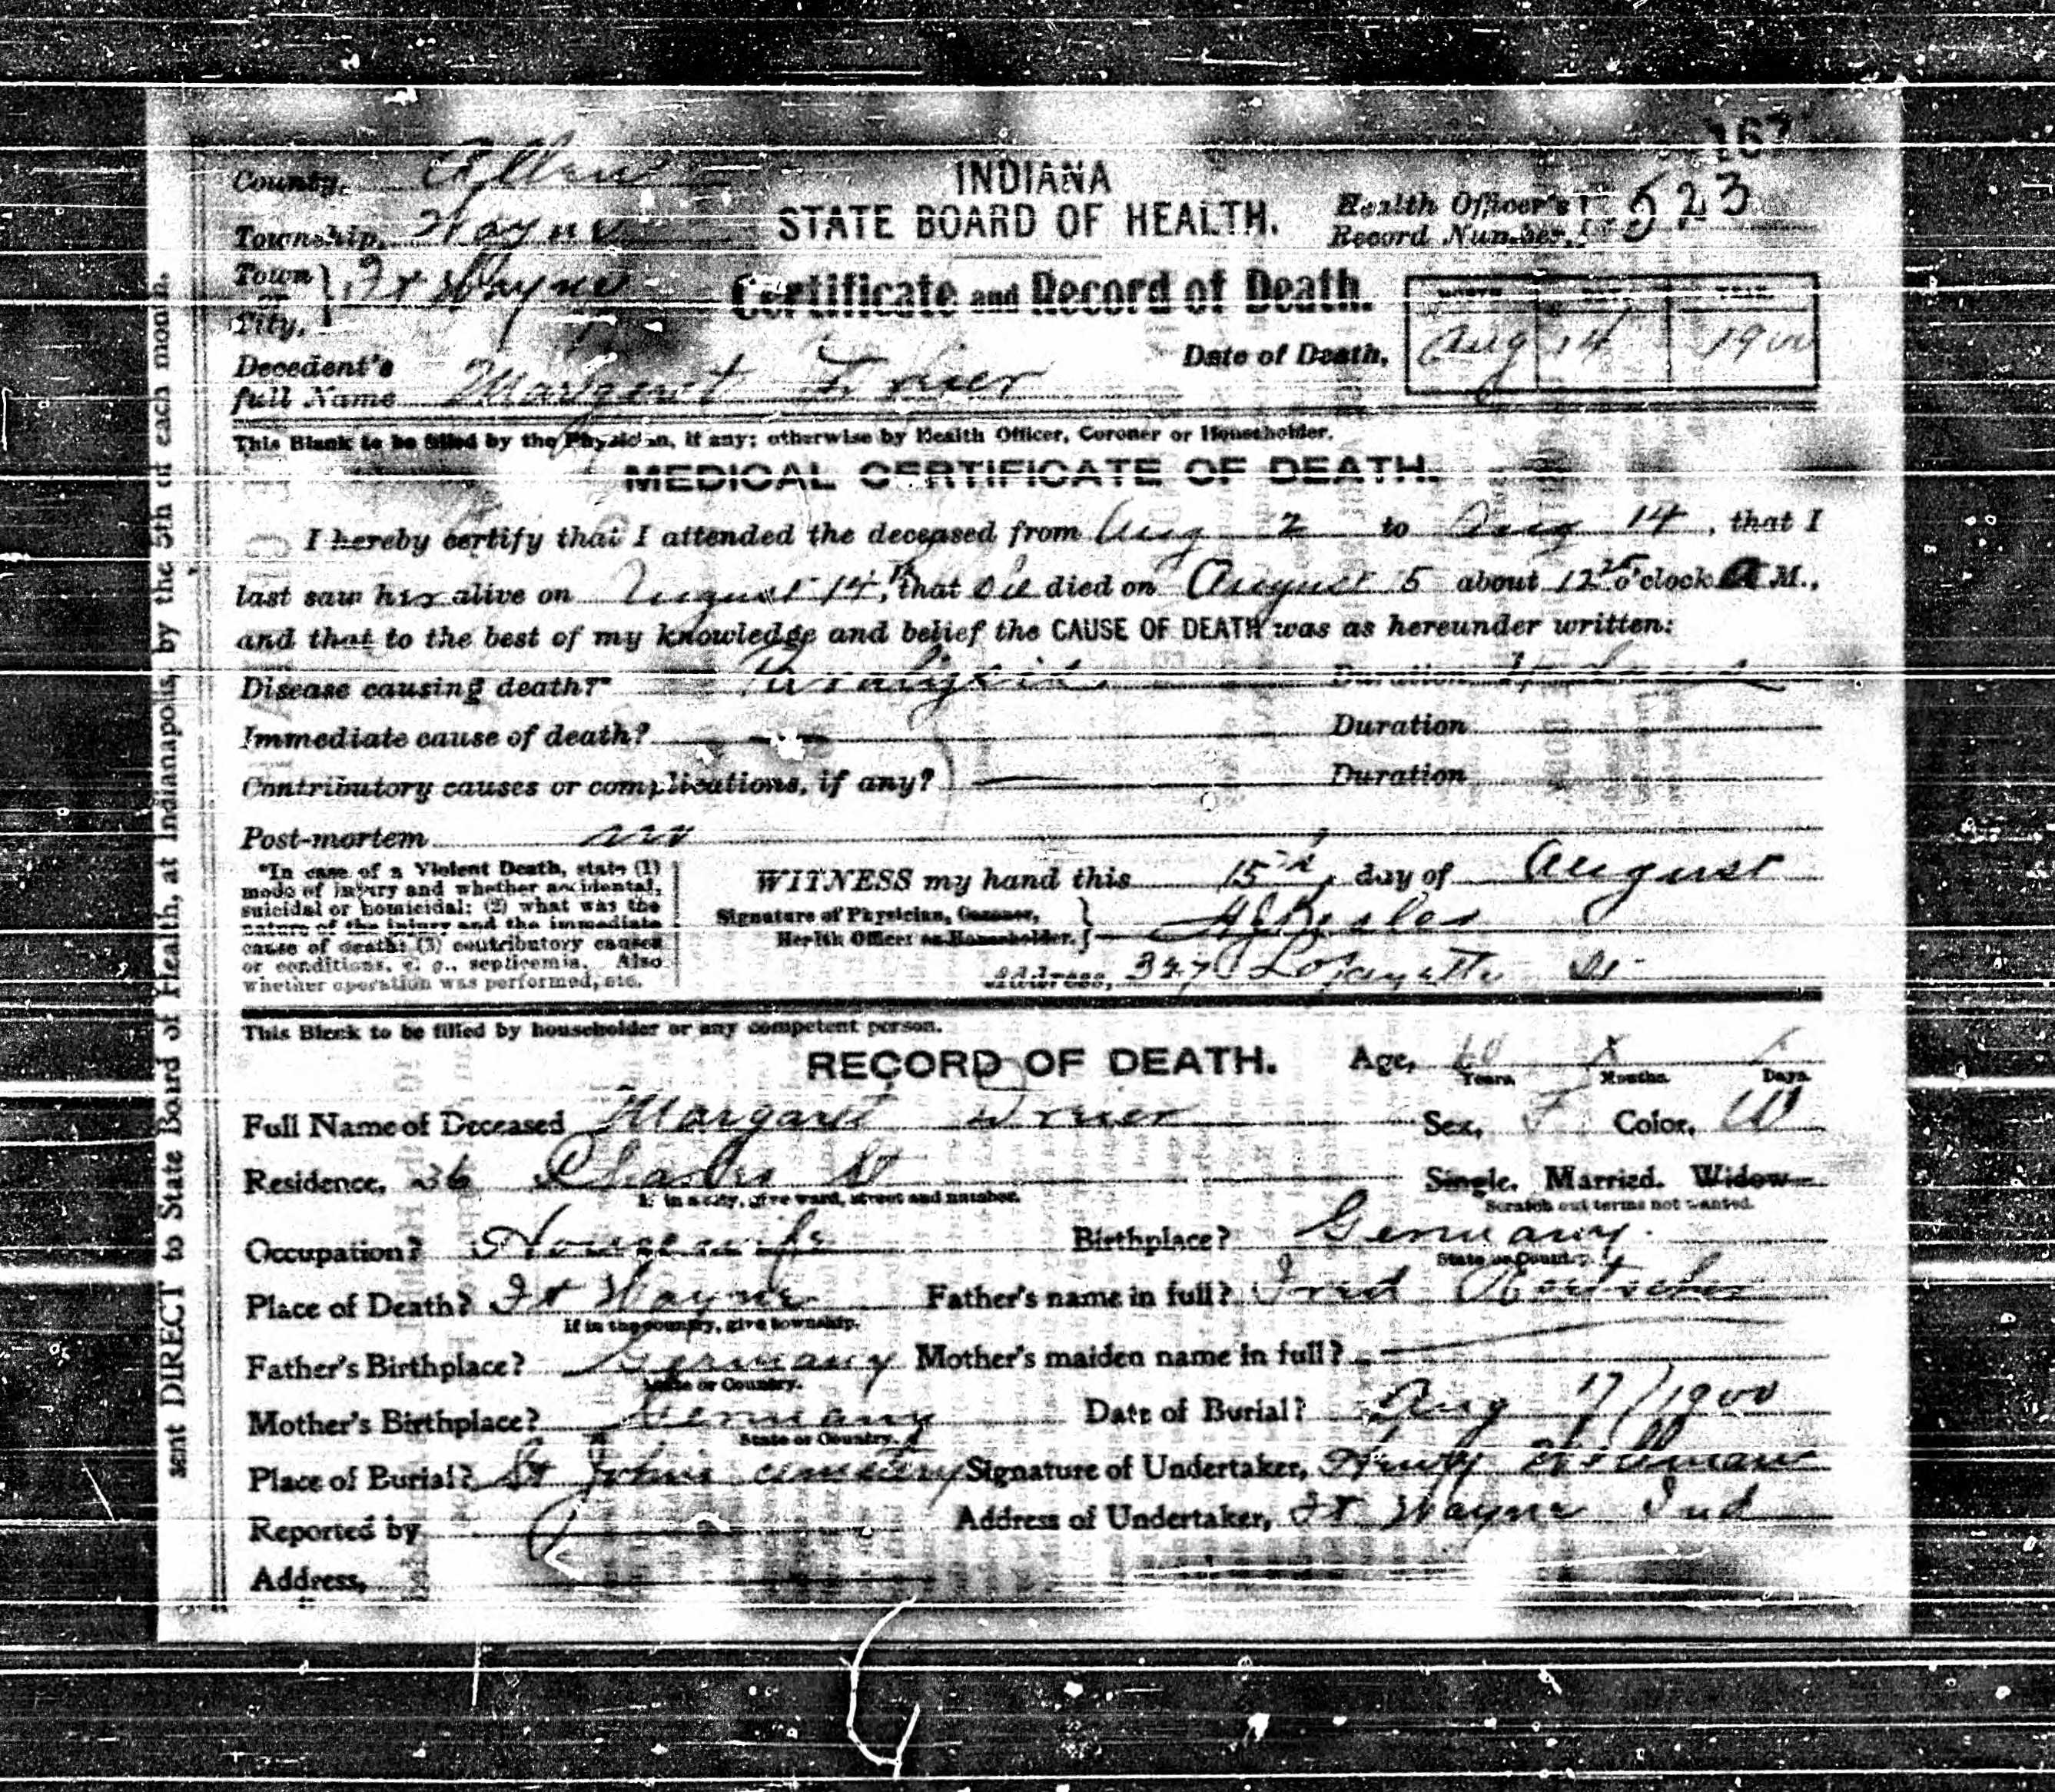 167
County, Allen
INDIANA
STATE BOARD OF HEALTH.
Health Officer's
Record Number, 523
Township, Wayne
Town or City, Ft Wayne
Certificate and Record of Death.
MONTH DAY YEAR
Date of Death, Aug 14 1900
Decedent's
full Name Margaret
This Blank to be filled by the Physician, if any; otherwise by Health Officer, Coroner or Householder.
MEDICAL CERTIFICATE OF DEATH.
I hereby certify that I attended the deceased from Aug 2 to Aug 14, that I
last saw her alive on August 14th, that she died on August 5 about 12 o'clock A M.,
and that to the best of my knowledge and belief the CAUSE OF DEATH was as hereunder written:
Disease causing death?* Paralysis Duration
Immediate cause of death? Duration
Contributory causes or complications, if any? Duration
Post-mortem no
*In case of a Violent Death, state (1)
mode of injury and whether accidental,
suicidal or homicidal; (2) what was the
nature of the injury and the immediate
cause of death; (3) contributory causes
or conditions, e. g., septicemia. Also
whether operation was performed, etc.
WITNESS my hand this 15th, day of August
Signature of Physician, Coroner,
Health Officer or Householder.
Address, 327 Lafayette St.
This Blank to be filled by householder or any competent person.
RECORD OF DEATH. Age,
Years. Months. Days.
Full Name of Deceased Margaret Sex, F Color, W
Residence, 36 Charles St Single. Married. Widow
If in a city, give ward, street and number. Scratch out terms not wanted.
Occupation? Housewife Birthplace? Germany.
State or Country.
Place of Death? Ft Wayne Father's name in full? Fred
If in the country, give township.
Father's Birthplace? Germany Mother's maiden name in full?
State or Country.
Mother's Birthplace? Germany Date of Burial? Aug 17/1900
State or Country.
Place of Burial? St Johns cemetery Signature of Undertaker,
Reported by Address of Undertaker, Ft Wayne Ind
Address,
sent DIRECT to State Board of Health, at Indianapolis, by the 5th of each month.